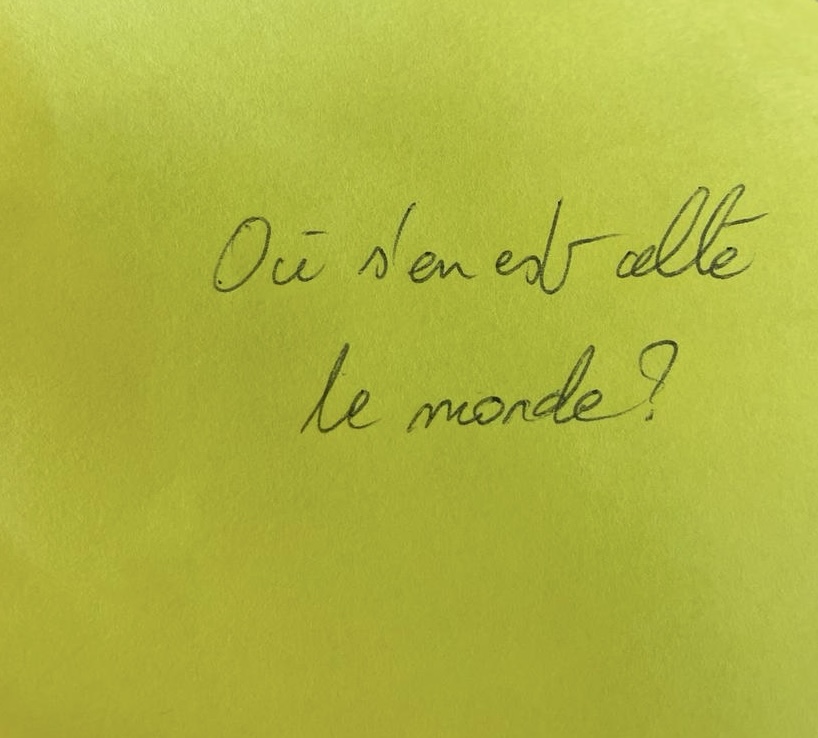 Où s'en est allé
le monde?